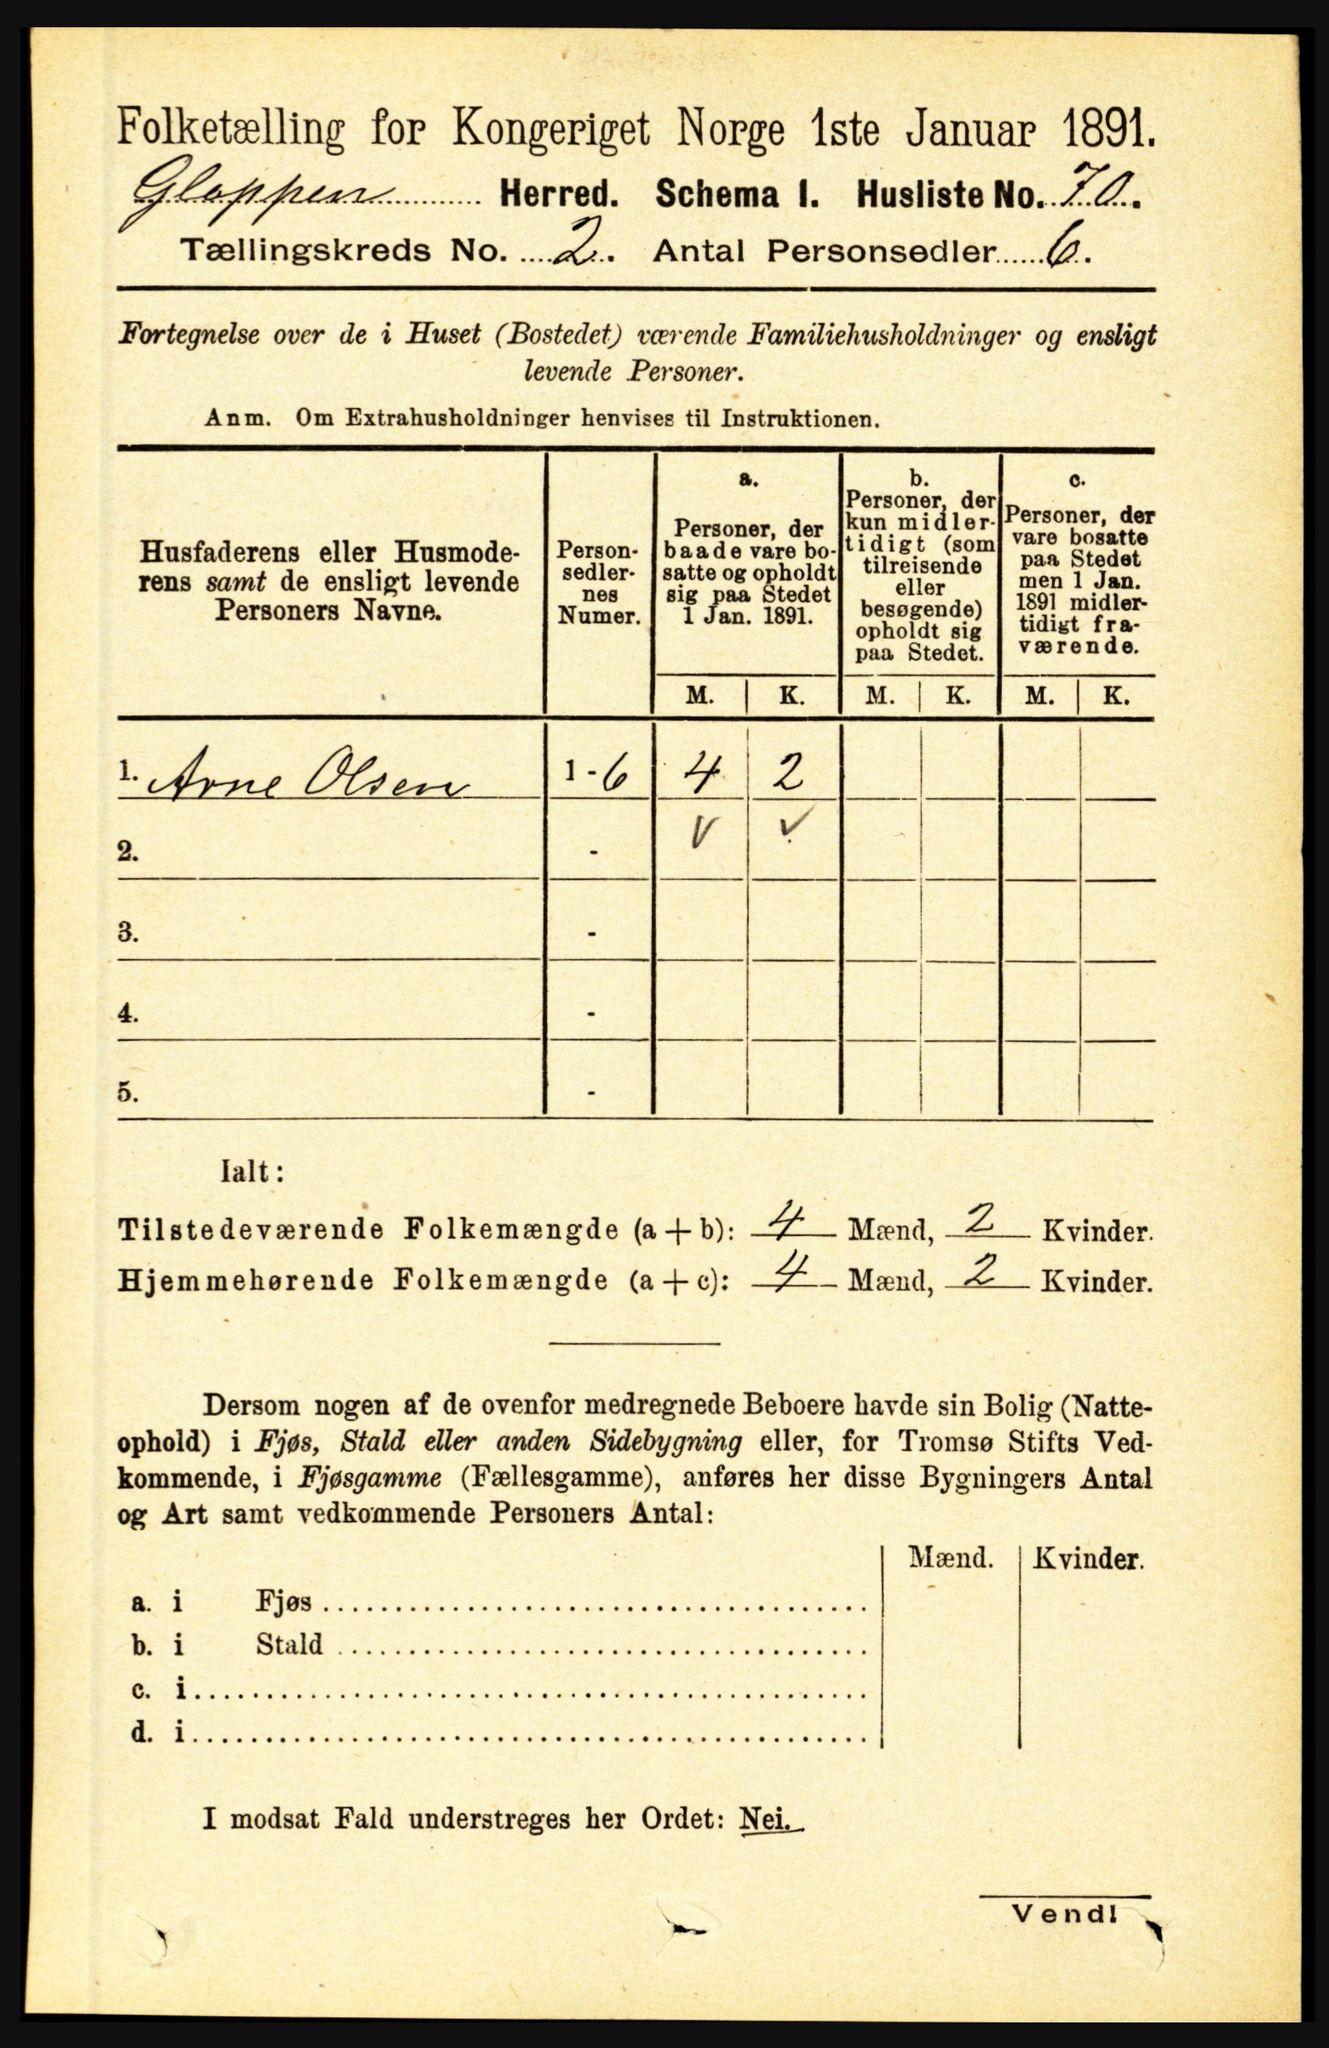 Folketælling for Kongeriget Norge 1ste Januar 1891.
Gloppen Herred. Schema I. Husliste No. 70.
Tællingskreds No. 2. Antal Personsedler 6.
Fortegnelse over de i Huset (Bostedet) værende Familiehusholdninger og ensligt
levende Personer.
Anm. Om Extrahusholdninger henvises til Instruktionen.
Husfaderens eller Husmode-
rens samt de ensligt levende
Personers Navne.
Person-
sedler-
nes
Numer.
a.
Personer, der
baade vare bo-
satte og opholdt
sig paa Stedet
1 Jan. 1891.
b.
Personer, der
kun midler-
tidigt (som
tilreisende
eller
besøgende)
opholdt sig
paa Stedet.
c.
Personer, der
vare bosatte
paa Stedet
men 1 Jan.
1891 midler-
tidigt fra-
værende.
M. K. M. K. M. K.
1. Arne Olsen 1 - 6 4 2
2. - V ✓
3. -
4. -
5. -
Ialt:
Tilstedeværende Folkemængde (a + b): 4 Mænd, 2 Kvinder.
Hjemmehørende Folkemængde (a + c): 4 Mænd, 2 Kvinder.
Dersom nogen af de ovenfor medregnede Beboere havde sin Bolig (Natte-
ophold) i Fjøs, Stald eller anden Sidebygning eller, for Tromsø Stifts Ved-
kommende, i Fjøsgamme (Fællesgamme), anføres her disse Bygningers Antal
og Art samt vedkommende Personers Antal:
Mænd. Kvinder.
a. i Fjøs
b. i Stald
c. i
d. i
I modsat Fald understreges her Ordet: Nei.
Vend!